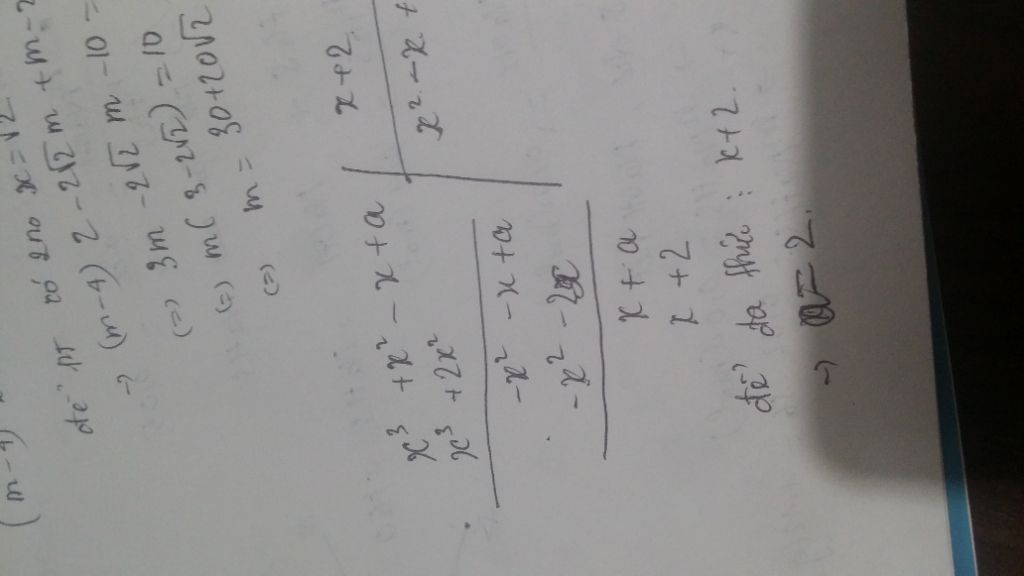 (m-4)
để PT có 2no x=√2
-> (m-4) 2 - 2√2 m + m-2
(=) 3m - 2√2 m - 10 =
(=) m( 3-2√2) = 10
(=) m = 30+20√2
x³ + x² - x + a
x+2
x³ + 2x²
x² - x +
-x² - x + a
-x² - 2x
x + a
x + 2
để đa thức ⋮ x+2.
-> a = 2.